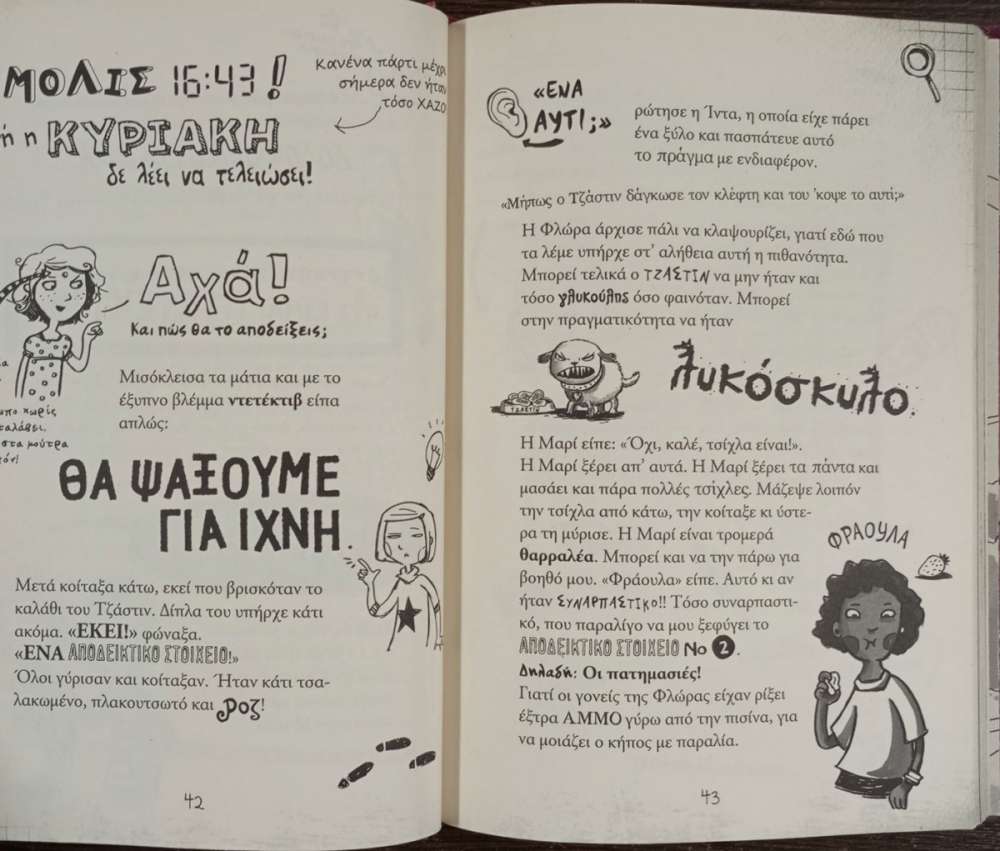 ΜΟΛΙΣ 16:43!
Κανένα πάρτι μέχρι
σήμερα δεν ήταν
τόσο ΧΑΖΟ
ή η ΚΥΡΙΑΚΗ
δε λέει να τελειώσει!
Αχά!
Και πώς θα το αποδείξεις;
χωρίς
στα μούτρα
Μισόκλεισα τα μάτια και με το
έξυπνο βλέμμα ντετέκτιβ είπα
απλώς:
ΘΑ ΨΑΞΟΥΜΕ
ΓΙΑ ΙΧΝΗ.
Μετά κοίταξα κάτω, εκεί που βρισκόταν το
καλάθι του Τζάστιν. Δίπλα του υπήρχε κάτι
ακόμα. «ΕΚΕΙ!» φώναξα.
«ΕΝΑ ΑΠΟΔΕΙΚΤΙΚΟ ΣΤΟΙΧΕΙΟ!»
Όλοι γύρισαν και κοίταξαν. Ήταν κάτι τσα-
λακωμένο, πλακουτσωτό και Ροζ!
42
«ΕΝΑ
ΑΥΤΙ;»
ρώτησε η Ίντα, η οποία είχε πάρει
ένα ξύλο και πασπάτευε αυτό
το πράγμα με ενδιαφέρον.
«Μήπως ο Τζάστιν δάγκωσε τον κλέφτη και του 'κοψε το αυτί;»
Η Φλώρα άρχισε πάλι να κλαψουρίζει, γιατί εδώ που
τα λέμε υπήρχε στ' αλήθεια αυτή η πιθανότητα.
Μπορεί τελικά ο ΤΖΑΣΤΙΝ να μην ήταν και
τόσο γλυκούλης όσο φαινόταν. Μπορεί
στην πραγματικότητα να ήταν
ΤΖΑΣΤΙΝ
λυκόσκυλο.
Η Μαρί είπε: «Όχι, καλέ, τσίχλα είναι!».
Η Μαρί ξέρει απ' αυτά. Η Μαρί ξέρει τα πάντα και
μασάει και πάρα πολλές τσίχλες. Μάζεψε λοιπόν
την τσίχλα από κάτω, την κοίταξε κι ύστε-
ρα τη μύρισε. Η Μαρί είναι τρομερά
θαρραλέα. Μπορεί και να την πάρω για
βοηθό μου. «Φράουλα» είπε. Αυτό κι αν
ήταν ΣΥΝΑΡΠΑΣΤΙΚΟ!! Τόσο συναρπαστι-
κό, που παραλίγο να μου ξεφύγει το
ΑΠΟΔΕΙΚΤΙΚΟ ΣΤΟΙΧΕΙΟ Νο 2.
Δηλαδή: Οι πατημασιές!
Γιατί οι γονείς της Φλώρας είχαν ρίξει
έξτρα ΑΜΜΟ γύρω από την πισίνα, για
να μοιάζει ο κήπος με παραλία.
ΦΡΑΟΥΛΑ
43